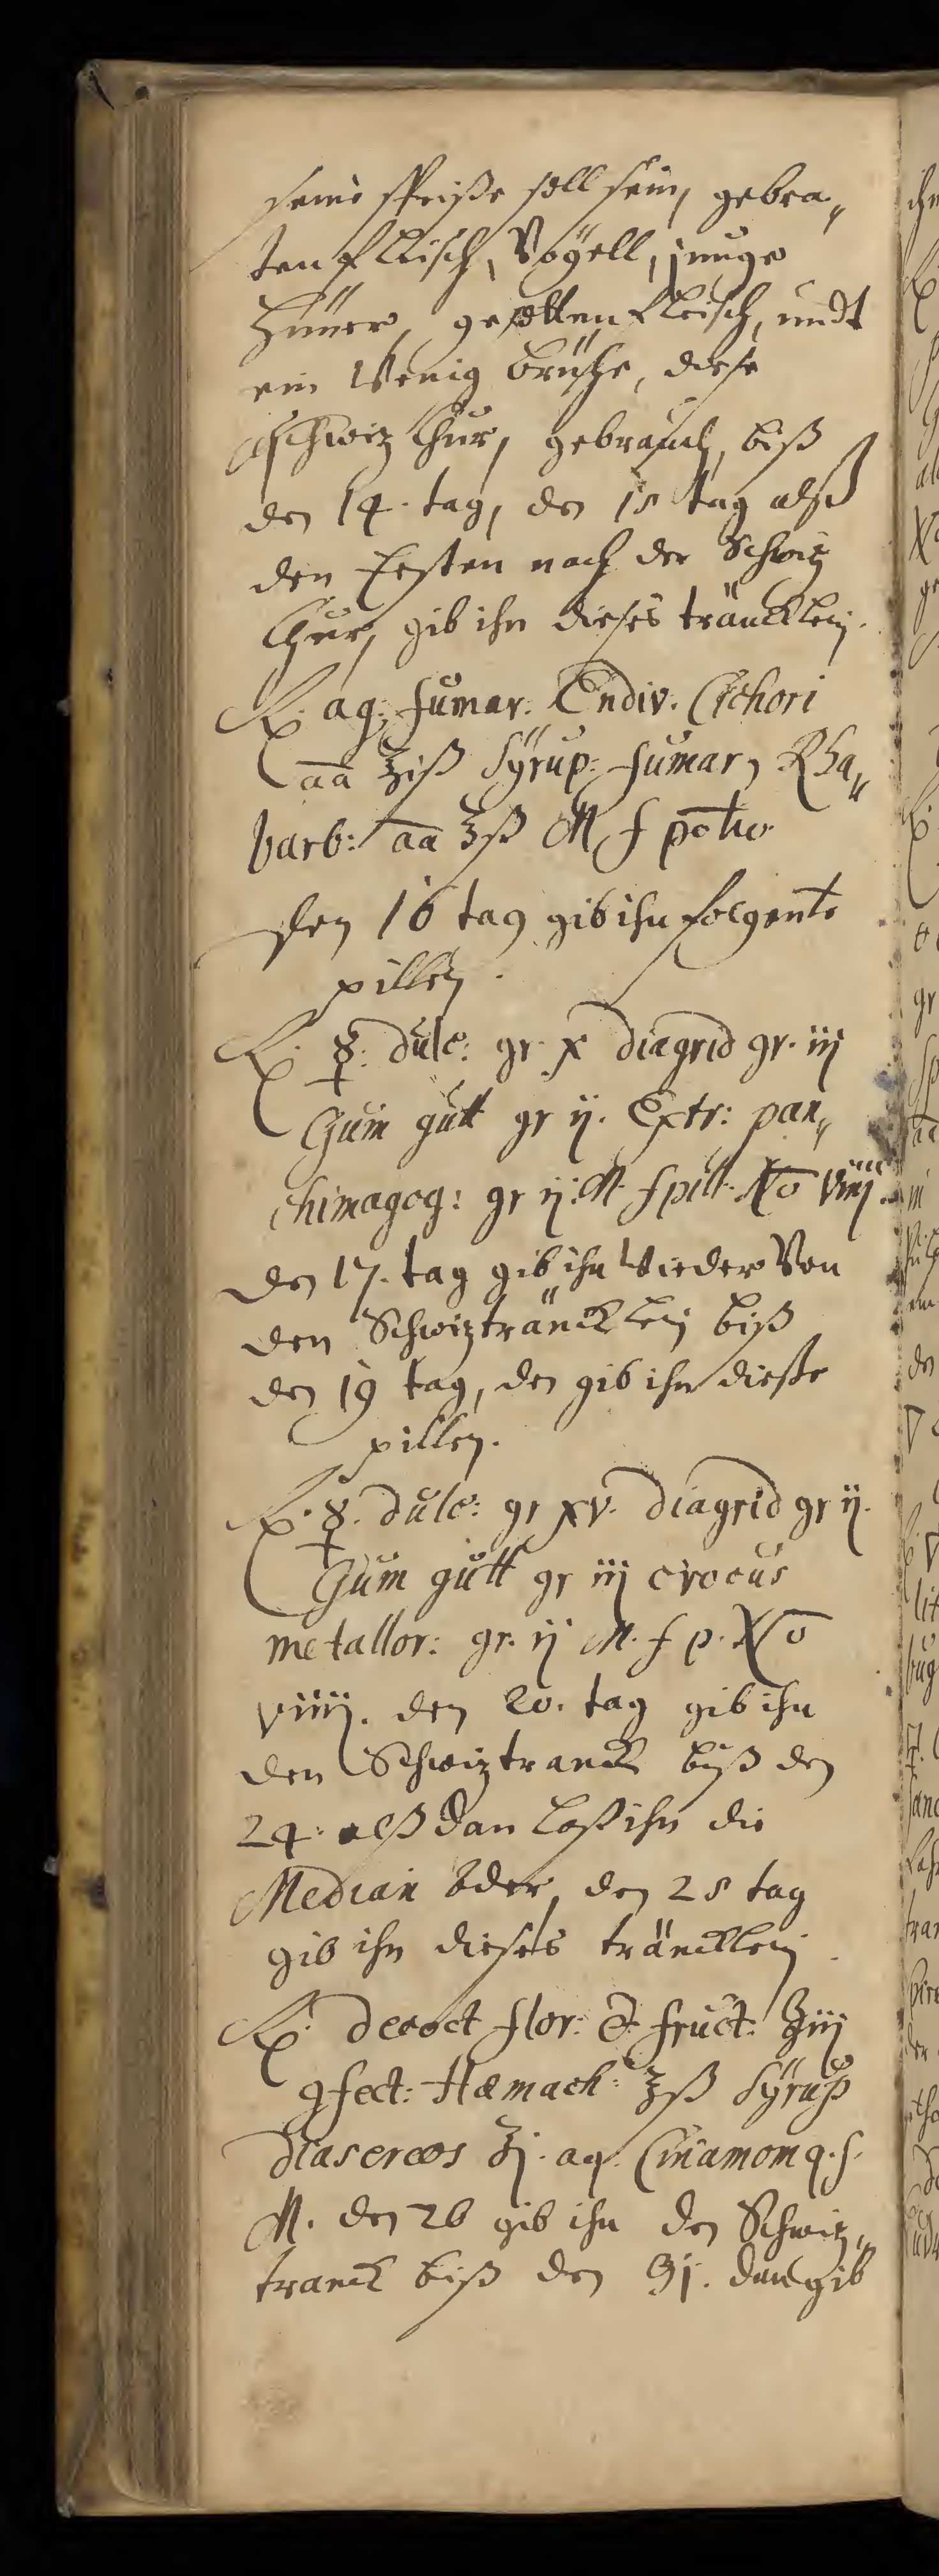 seine speiße soll sein, gebra„
ten fleisch, Vögell, junge
Hüner, gesotten fleisch, undt
ein wenig brühe, diese
schwiz Chur, gebrauch, biß
den 14. tag, den 15 tag alß
den Ersten nach der Schwiz
Chur, gib ihn dieses träncklein.
℞. aq: fumar: Endiv. Cichori
aa ℥iß Syrup: fumar, Rha„
barb: aa ℥ß M f potio
den 16 tag gib ihn folgente
pillen.
℞. ☿. dulc: gr. x diagrid gr. iij
Gum gutt gr ij. Extr: pan„
chimagog: gr ij. M. f pill. No viiij.
den 17. tag gib ihn wieder Von
den Schwiztränncklein biß
den 19 tag, den gib ihn dieße
pillen.
℞. ☿. dulc: gr xv. diagrid gr ij.
Gum gutt gr iij crocus
metallor: gr. ij M. f p. No
viiij. den 20. tag gib ihn
den Schwiztranck biß den
24. alß dan laß ihn die
Median oder, den 25 tag
gib ihn dieses träncklein
℞. decoct flor: & fruct: ℥iij
ꝯfect: Hamach: ʒß Syrup
diasereos ℥j. aq. Cinamom q. s.
M. den 26 gib ihn den Schwiz„
tranck biß den 31. dan gib